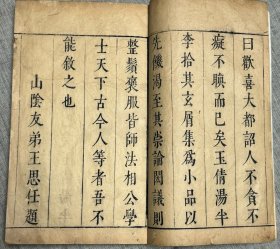 曰歡喜大都認人不貪不
癡不腆而已矣玉倩湯半
李拾其玄屑集爲小品以
先饑渴至其崇論閎議則
整鬚褒服皆師法相公學
士天下古今人等者吾不
能敘之也
山陰友弟王思任題